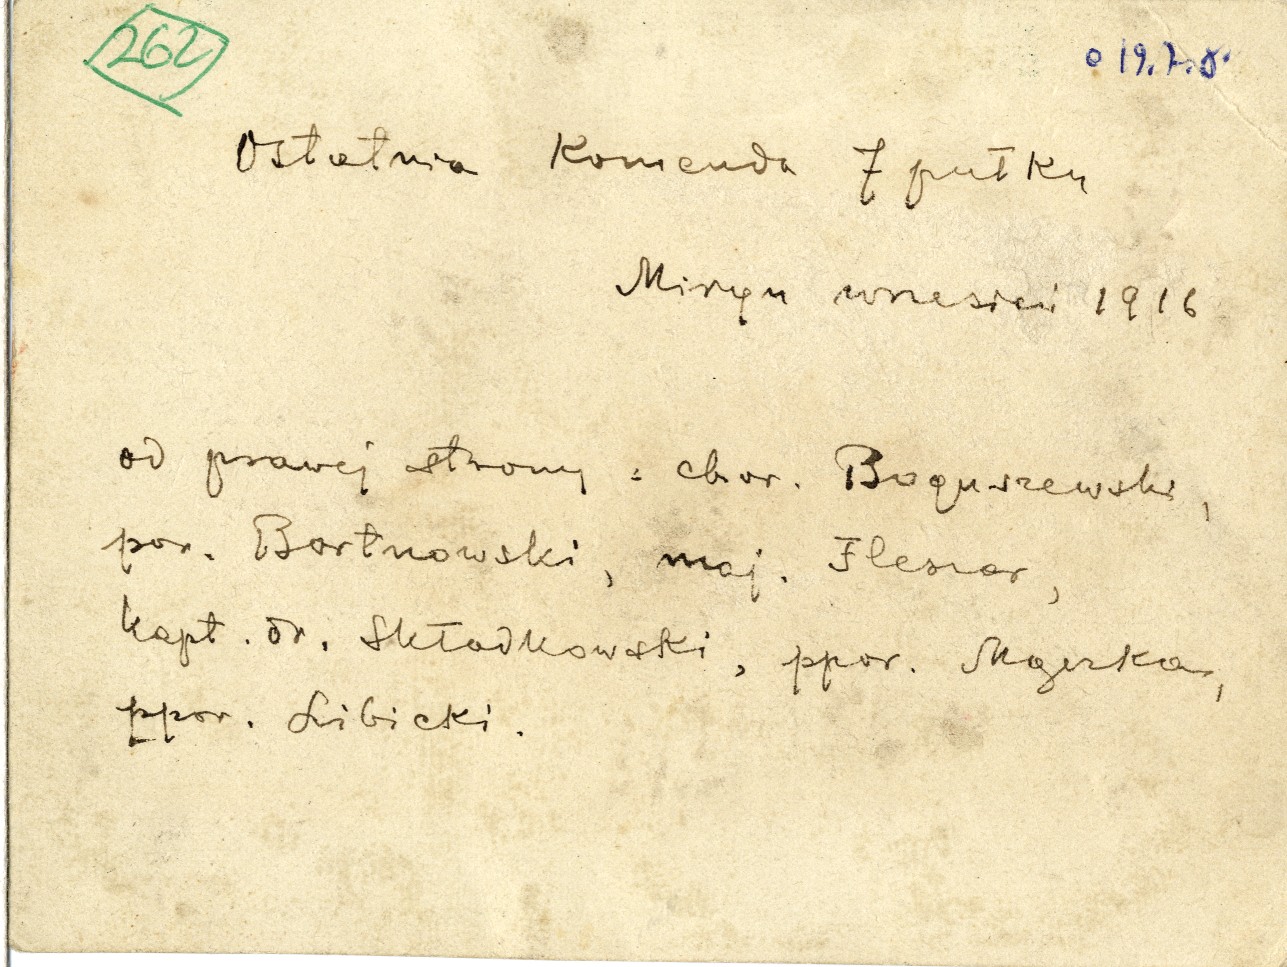 262
o 19.7.8.
Ostatnia Komenda 7 pułku
Miryn wrzesień 1916
od prawej strony : chor. Boguszewski,
por. Bortnowski, maj. Fleszar,
kapt. dr. Składkowski, ppor. Magerka,
ppor. Libicki.